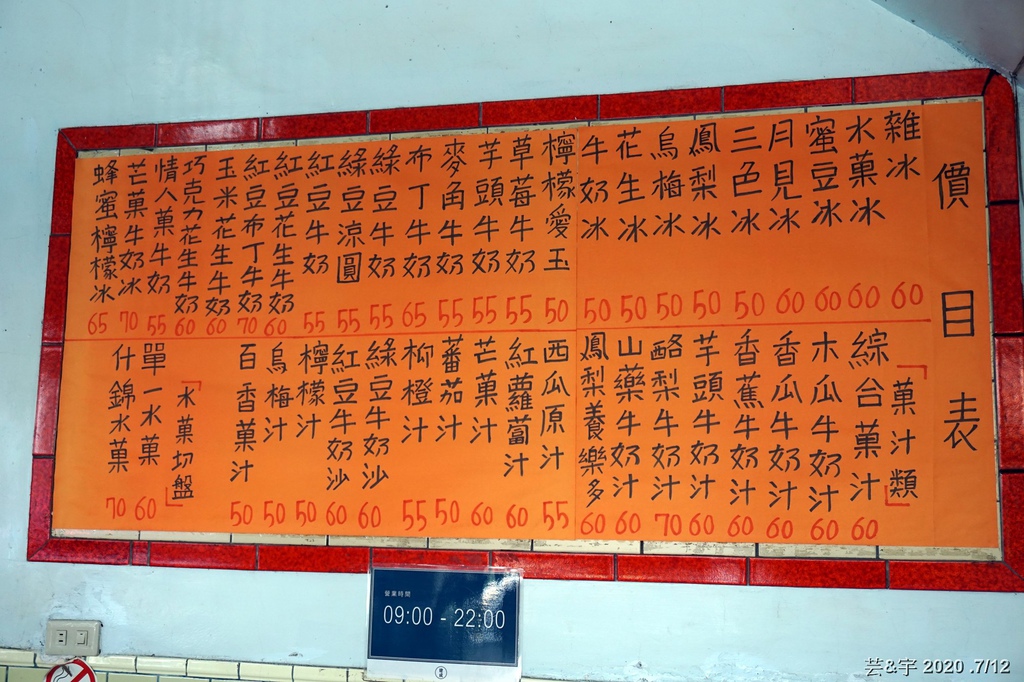 價目表
雜冰 60
水菓冰 60
蜜豆冰 60
月見冰 60
三色冰 50
鳳梨冰 50
烏梅冰 50
花生冰 50
牛奶冰 50
檸檬愛玉 50
草莓牛奶 55
芋頭牛奶 55
麥角牛奶 55
布丁牛奶 65
綠豆牛奶 55
綠豆涼圓 55
紅豆牛奶 55
紅豆花生牛奶 60
紅豆布丁牛奶 70
玉米花生牛奶 60
巧克力花生牛奶 60
情人菓牛奶 55
芒菓牛奶冰 70
蜂蜜檸檬冰 65
「菓汁類」
綜合菓汁 60
木瓜牛奶汁 60
香瓜牛奶汁 60
香蕉牛奶汁 60
芋頭牛奶汁 60
酪梨牛奶汁 70
山藥牛奶汁 60
鳳梨養樂多 60
西瓜原汁 55
紅蘿蔔汁 60
芒菓汁 60
蕃茄汁 50
柳橙汁 55
綠豆牛奶沙 60
紅豆牛奶沙 60
檸檬汁 50
烏梅汁 50
百香菓汁 50
「水菓切盤」
單一水菓 60
什錦水菓 70
營業時間
09:00 - 22:00
芸&宇 2020 .7/12